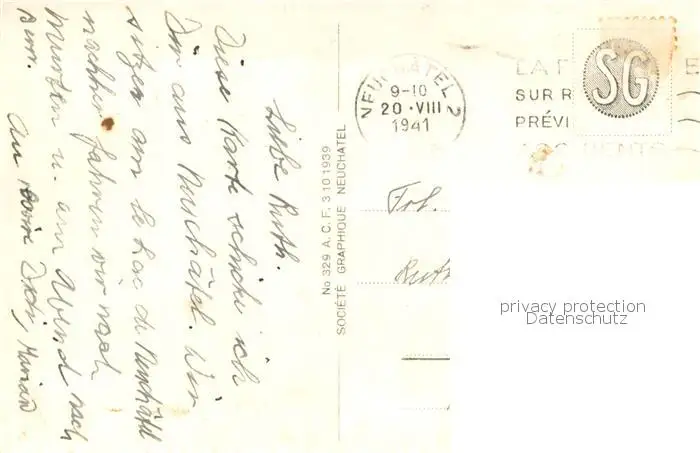 Liebe Ruth.
Diese Karte schicke ich
Dir aus Neuchâtel. Wir
sitzen am le Lac de Neuchâtel
nachher fahren wir nach
Murten u. am Abend nach
Bern.
No 329 A. C. F. 3 10 1939
SOCIÉTÉ GRAPHIQUE NEUCHATEL
NEUCHÂTEL 2
9-10
20·VIII
1941
SUR R
PRÉVI
SG
Frl.
Ruth
privacy protection
Datenschutz